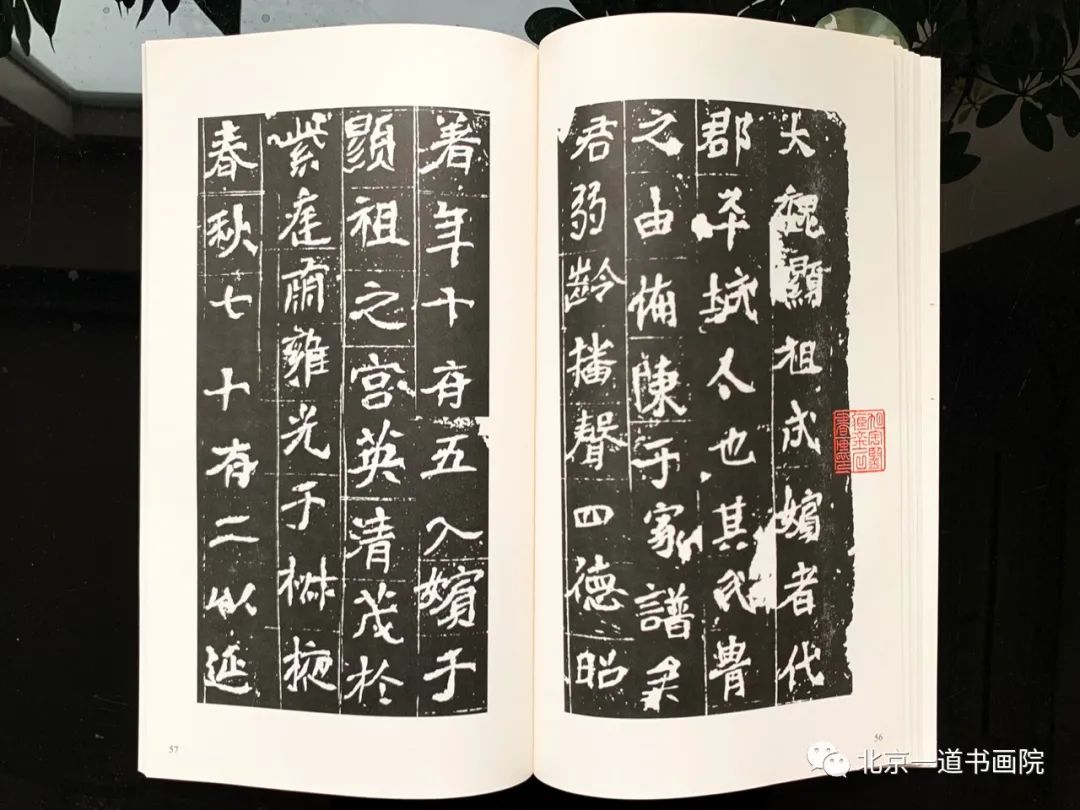 大魏顯祖成嬪者代
郡平城人也其氏胄
之由備陳于家譜矣
君弱齡播聲四德昭
著年十有五入嬪于
顯祖之宮英清茂於
紫庭肅雍光于椒掖
春秋七十有二以延
56
57
北京一道书画院